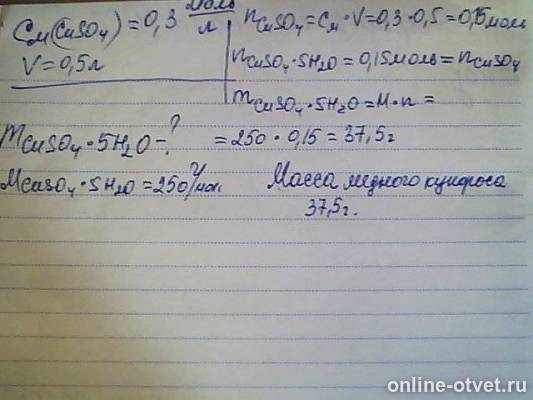 Cм(CuSO4) = 0,3 моль/л
V = 0,5 л
nCuSO4 = Cм · V = 0,3 · 0,5 = 0,15 моль
nCuSO4 · 5H2O = 0,15 моль = nCuSO4
mCuSO4 · 5H2O = M · n =
mCuSO4 · 5H2O – ?
= 250 · 0,15 = 37,5 г
MCuSO4 · 5H2O = 250 г/мол.
Масса медного купороса
37,5 г.
online-otvet.ru